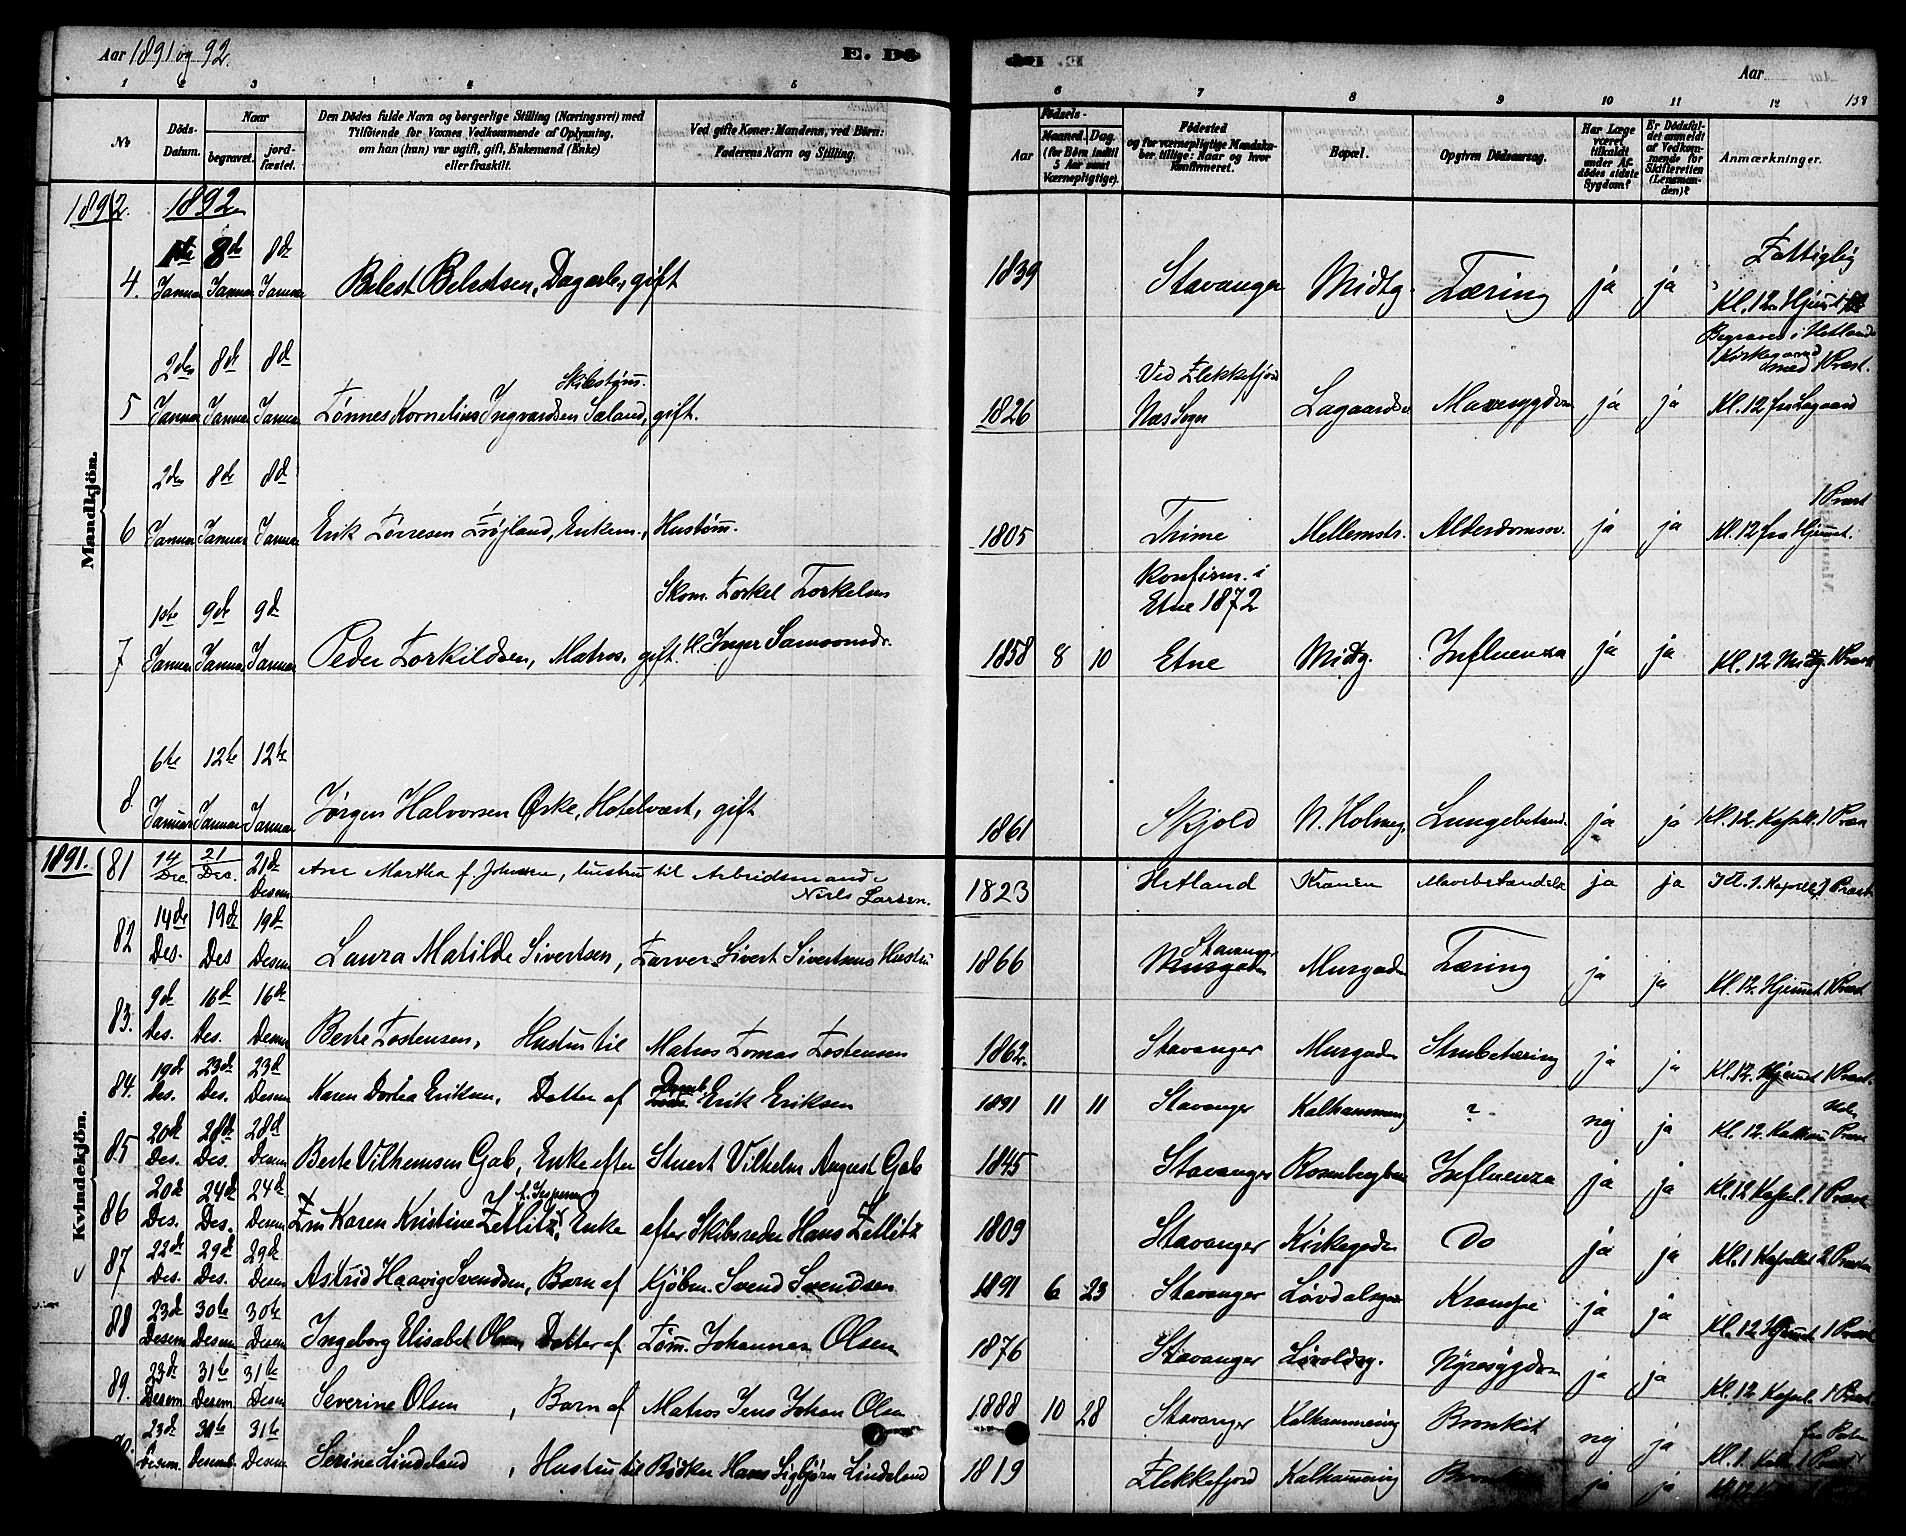 Aar 1891 og 92.
E. Dö
E. Dö
Aar
158
1 2 3 4 5 6 7 8 9 10 11 12
No
Döds-Datum.
Naar
begravet.
jord-fæstet.
Den Dödes fulde Navn og borgerlige Stilling (Næringsvei) med
Tilföiende for Voxnes Vedkommende af Oplysning,
om han (hun) var ugift, gift, Enkemand (Enke)
eller fraskilt.
Ved gifte Koner: Mandens, ved Börn:
Faderens Navn og Stilling.
Födsels-
Aar
Maaned. Dag.
(for Börn indtil
5 Aar samt
Værnepligtige).
Födested
og for værnepligtige Mandska-
ber tillige: Naar og hvor
Konfirmeret.
Bopæl.
Opgiven Dödsaarsag.
Har Læge
været
tilkaldt
under Af-
dödes sidste
Sygdom?
Er Dödsfal-
det anmeldt
af Vedkom-
mende for
Skifteretten
(Lensman-
den)?
Anmærkninger.
Mandkjön.
1892. 1892
4. 1ste Januar 8de Januar 8d Januar Belest Belestsen, Dagarb., gift 1839 Stavanger Midtg. Tæring ja ja Fattiglig Kl. 12 Hjemmet
5 2den Januar 8d Januar 8d Januar Tönnes Kornelius Ingvardsen Sæland, Skibstømm. gift. 1826 Ved Flekkefjord Næs Sogn Lagaardsv. Mavesygdom ja ja Begraves i Hetlands Kirkegaard med 1 Præst. Kl. 12 fra Lagaard
6 2den Januar 8de Januar 8d Januar Erik Tørresen Frøjland, Enkem., Hustømm. 1805 Time Mellemstr. Alderdomssv. ja ja 1 Præst Kl. 12 fra Hjemmet.
7 1ste Januar 9de Januar 9d Januar Peder Torkildsen, Matros, gift. Skom. Torkel Torkelsen H. Inger Samsonsdr. 1858 8 10 Konfirm. i Etne 1872 Etne Midtg. Influenza ja ja Kl. 12 Midtg. 1 Præst
8 6te Januar 12te Januar 12te Januar Jørgen Halvorsen Øske, Hotelvært, gift 1861 Skjold N. Holmeg. Lungebetænd. ja ja Kl. 12 Kapell. 1 Præst
Kvindekjön.
1891. 81 14 Dec. 21 Des. 21d Desem Ane Martha f. Johnsen, hustru til Arbeidsmand Niels Larsen. 1823 Hetland Kranen Mavebetændelse ja ja Kl. 1. Kapellet 1 Præst
82 14de Des. 19de Des 19d Desem Laura Matilde Sivertsen, Farver Sivert Sivertsens Hustru 1866 Stavanger Murgaden Murgaden Tæring ja ja Kl. 12. Hjemmet 1 Præst
83. 9de Des. 16d Des. 16de Desem Berte Tostensen, Hustru til Matros Tomas Tostensen 1862. Stavanger Murgaden Strubetæring ja ja Kl. 12. Hjemmet 1 Præst.
84. 19de Des. 23de Des. 23d Desem Karen Dortea Eriksen, Datter af Erik Eriksen 1891 11 11 Stavanger Kalhammeren ? nej ja Kl. 12. Kalham. Præst
85 20d Des. 28de Des. 28d Desem Berte Vilhemsen Gab, Enke efter Stuert Vilhelm August Gab 1845 Stavanger Rosenberg Influenza ja ja Kl. 12 Kapel. 1 Præst
86 20de Des. 24de Des. 24de Desem Fru Karen Kristine Zetlitz, f. Jespersen Enke efter Skibsreder Hans Zetlitz 1809 Stavanger Kirkegaden Do ja ja Kl. 1 Kapellet 2 Præster
87 22de Des. 29de Des. 29de Desem Astrid Haavig Svendsen, Barn af Kjøbm. Svend Svendsen 1891 6 23 Stavanger Løvdalsgaden Krampe ja ja Kl. 12 Hjemmet 1 Præst
88 23de Desem 30te Desem 30te Desem Ingeborg Elisabet Olsen, Datter af Tømm. Johannes Olsen 1876 Stavanger Nyresygdom ja ja Kl. 12 Kapel. 1 Præst
89. 23de Desem. 31te Desem. 31te Desem Severine Olsen, Barn af Matros Jens Johan Olsen 1888 10 28 Stavanger Kalhammering Bronkit nej ja Kl. 1. Kalh. 1 Præst
23d Desem. 31te Desemb 31te Desem Serine Lindeland, Hustru til Bødker Hans Sigbjørn Lindeland 1819 Flekkefjord Kalhammering ja ja